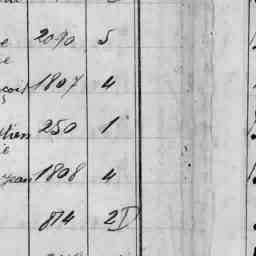 e 2090 5
e
coit 1807 4
s
tien 250 1
ie
Jean 1808 4
814 2D